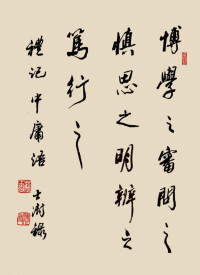 博學之審問之
慎思之明辨之
篤行之
禮記中庸語